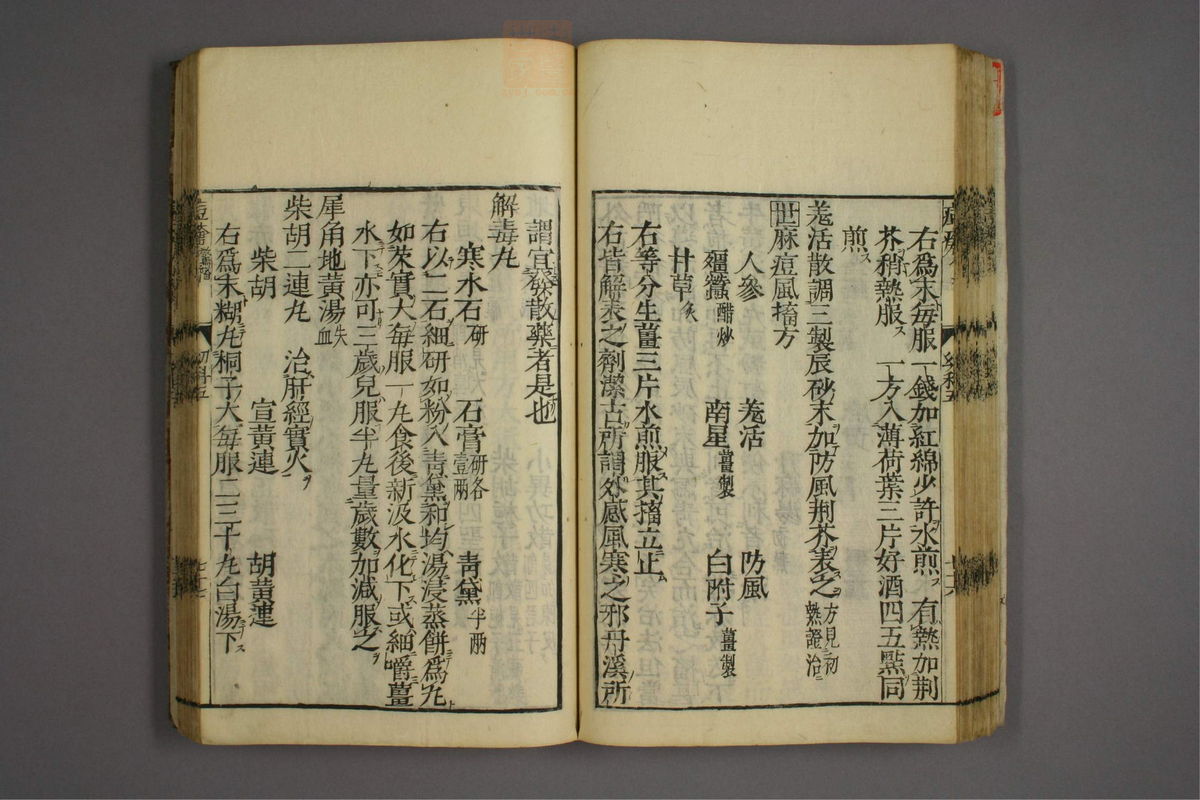 右爲末每服一錢加紅綿少許水煎ス有熱加荆
芥稍熱服ス 一方入薄荷葉三片好酒四五點同
煎ス
羗活散調三製辰砂末加防風荆芥表之 方見初熱證治ニ
世麻痘風搐方
人參 羗活 防風
殭蠶 醋炒 南星 薑製 白附子 薑製
甘草 炙
右等分生薑三片水煎服其搐立止
右皆解表之劑潔古所謂外感風寒之邪丹溪所
謂宜發散藥者是也
解毒丸
寒水石 研 石膏 研各壹兩 青黛 半兩
右以二石細研如粉入青黛和均湯浸蒸餅爲丸
如芡實大每服一丸食後新汲水化下或細嚼薑
水下亦可三歲兒服半丸量歲數加減服之
犀角地黃湯 失血
柴胡二連丸 治肝經實火
柴胡 宣黃連 胡黃連
右爲末糊丸桐子大每服二三十丸白湯下